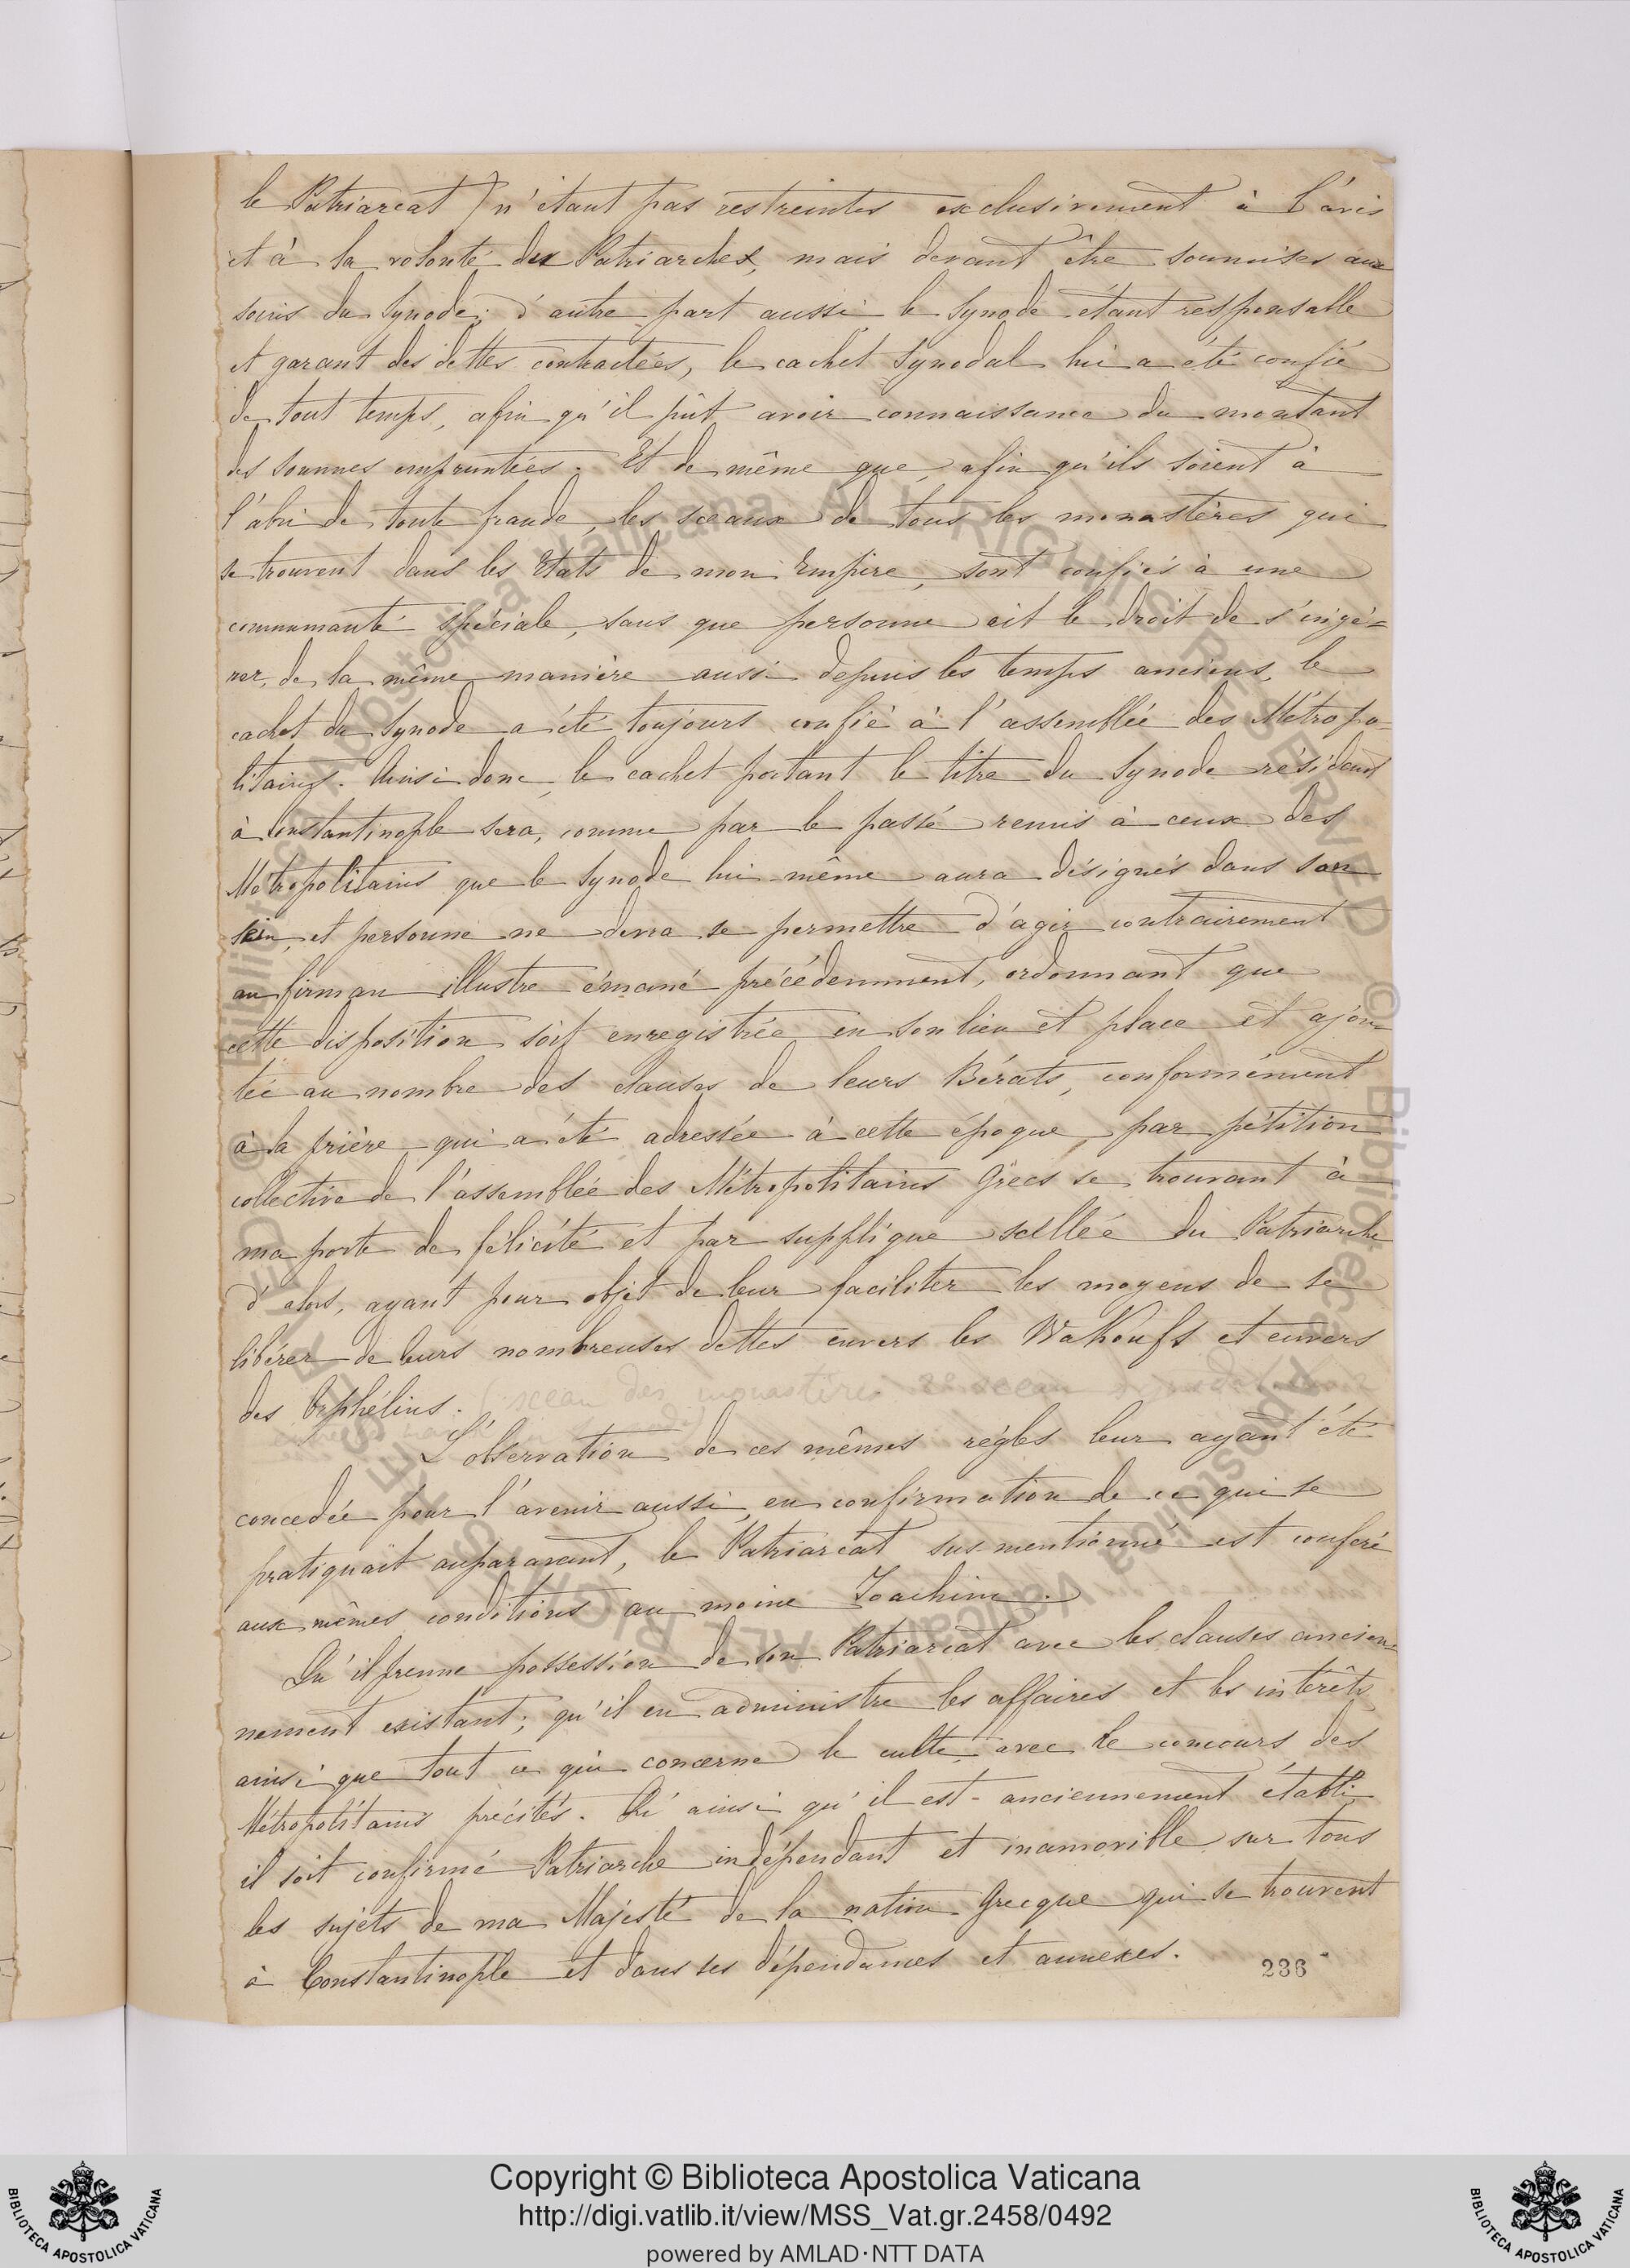 le Patriarcat) n'étant pas restreintes exclusivement à l'avis
et à la volonté des Patriarches, mais devant être soumises aux
soins du Synode; d'autre part aussi le Synode étant responsable
et garant des dettes contractées, le cachet Synodal lui a été confié
de tout temps, afin qu'il pût avoir connaissance du montant
des sommes empruntées. Et de même que, afin qu'ils soient à
l'abri de toute fraude, les sceaux de tous les monastères qui
se trouvent dans les Etats de mon Empire, sont confiés à une
communauté spéciale, sans que personne ait le droit de s'ingé=
rer, de la même manière aussi depuis les temps anciens, le
cachet du Synode a été toujours confié à l'assemblée des Métropo-
litains. Ainsi donc, le cachet portant le titre du Synode résidant
à Constantinople sera, comme par le passé remis à ceux des
Métropolitains que le Synode lui-même aura désignés dans son
sein, et personne ne devra se permettre d'agir contrairement
au firman illustre émané précédemment, ordonnant que
cette disposition soit enregistrée en son lieu et place et ajou-
tée au nombre des clauses de leurs Bérats, conformément
à la prière qui a été adressée à cette époque, par pétition
collective de l'assemblée des Métropolitains Grecs se trouvant à
ma porte de félicité et par supplique scellée du Patriarche
d'alors, ayant pour objet de leur faciliter les moyens de se
libérer de leurs nombreuses dettes envers les Wakoufs et envers
des Orphélins. (sceau des monastères sceau
L'observation de ces mêmes règles leur ayant été
concedée pour l'avenir aussi, en confirmation de ce qui se
pratiquait auparavant, le Patriarcat sus-mentionné est conferé
aux mêmes conditions au moine Joachim.
Qu'il prenne possession de son Patriarcat avec les clauses ancien-
nement existant; qu'il en administre les affaires et les intérêts
ainsi que tout ce qui concerne le culte avec le concours des
Métropolitains précités. Qu'ainsi qu'il est anciennement établi,
il soit confirmé Patriarche indépendant et inamovible sur tous
les sujets de ma Majesté de la nation Grecque qui se trouvent
à Constantinople et dans ses dépendances et annexes.
236
© Biblioteca Apostolica Vaticana ALL RIGHTS RESERVED
Copyright © Biblioteca Apostolica Vaticana
http://digi.vatlib.it/view/MSS_Vat.gr.2458/0492
powered by AMLAD·NTT DATA
BIBLIOTECA APOSTOLICA VATICANA
BIBLIOTECA APOSTOLICA VATICANA